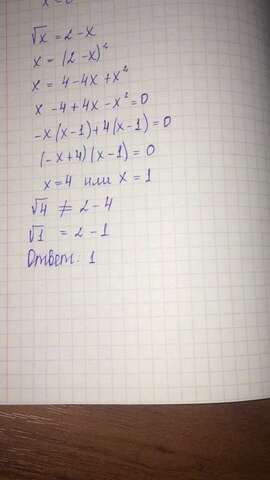 √x = 2 - x
x = (2 - x)²
x = 4 - 4x + x²
x - 4 + 4x - x² = 0
-x(x-1) + 4(x-1) = 0
(-x+4)(x-1) = 0
x = 4 или x = 1
√4 ≠ 2 - 4
√1 = 2 - 1
Ответ: 1